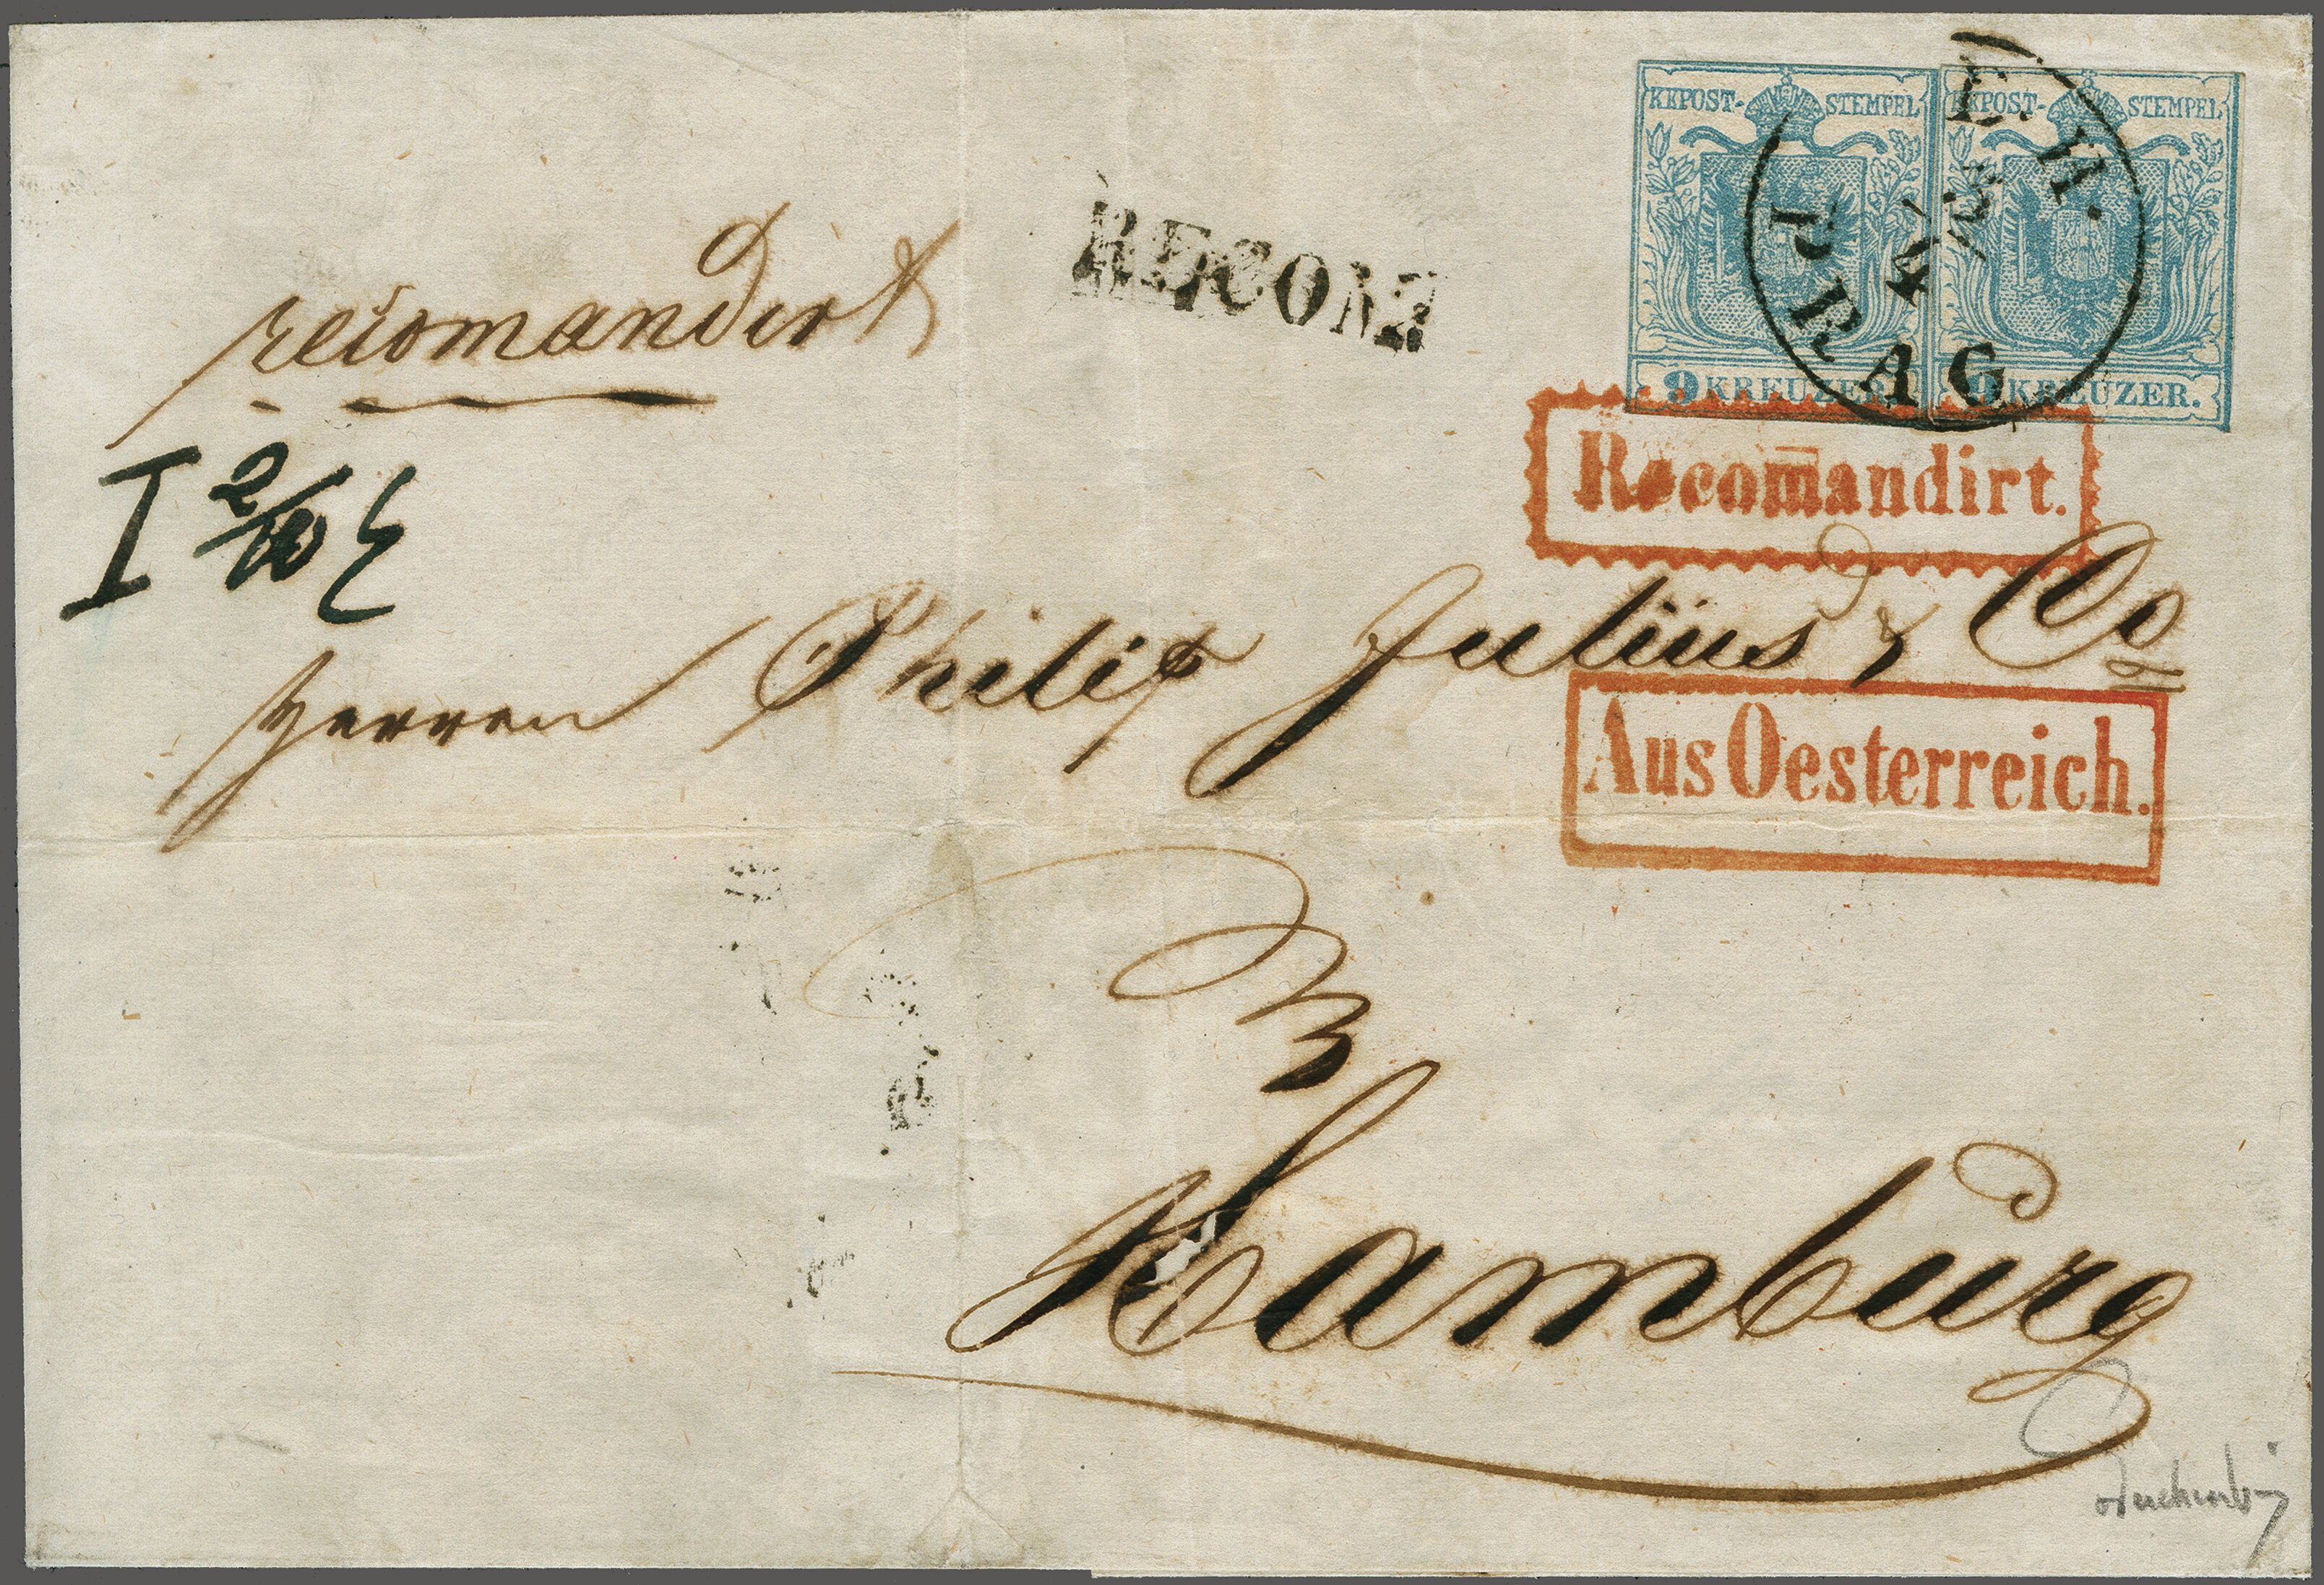 KKPOST-STEMPEL KKPOST-STEMPEL
9 KREUZER. 9 KREUZER.
E. H.
PRAG
RECOM
recomandirt
Recom̄andirt.
I 2/10
Herren Philip Julius & Co
Aus Oesterreich.
Hamburg